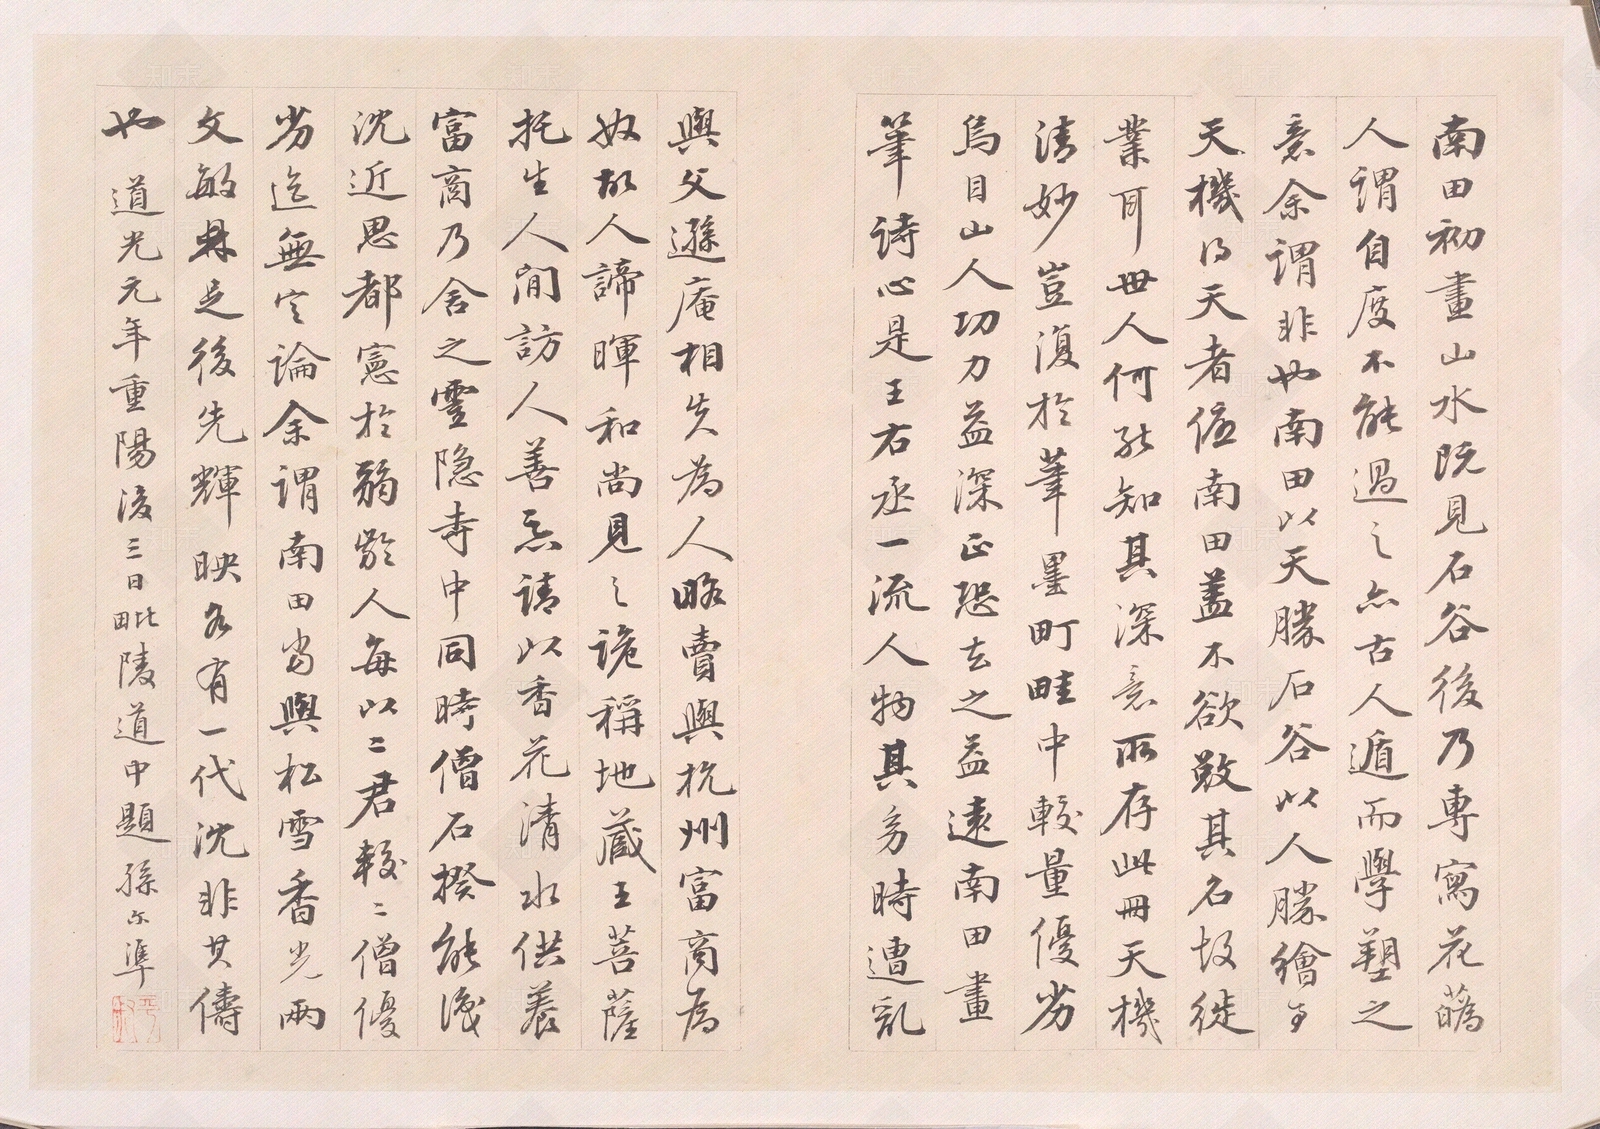 南田初畫山水既見石谷後乃專寫花蘤
人謂自度不能過之亦古人遁而學塑之
意余謂非也南田以天勝石谷以人勝繪事
天機得天者優南田蓋不欲斁其名故徙
業耳世人何能知其深意所存此冊天機
清妙豈復於筆墨町畦中較量優劣
烏目山人功力益深正恐去之益遠南田畫
筆詩心是王右丞一流人物其多時遭亂
與父遜庵相失為人略賣與杭州富商為
奴故人諦暉和尚見之詭稱地藏王菩薩
托生人間訪人善惡請以香花清水供養
富商乃舍之靈隱寺中同時僧石揆能識
沈近思都憲於弱齡人每以二君較二僧優
劣迄無定論余謂南田當與松雪香光兩
文敏鼎足後先輝映各有一代沈非其儔
也 道光元年重陽後三日毗陵道中題孫尔準